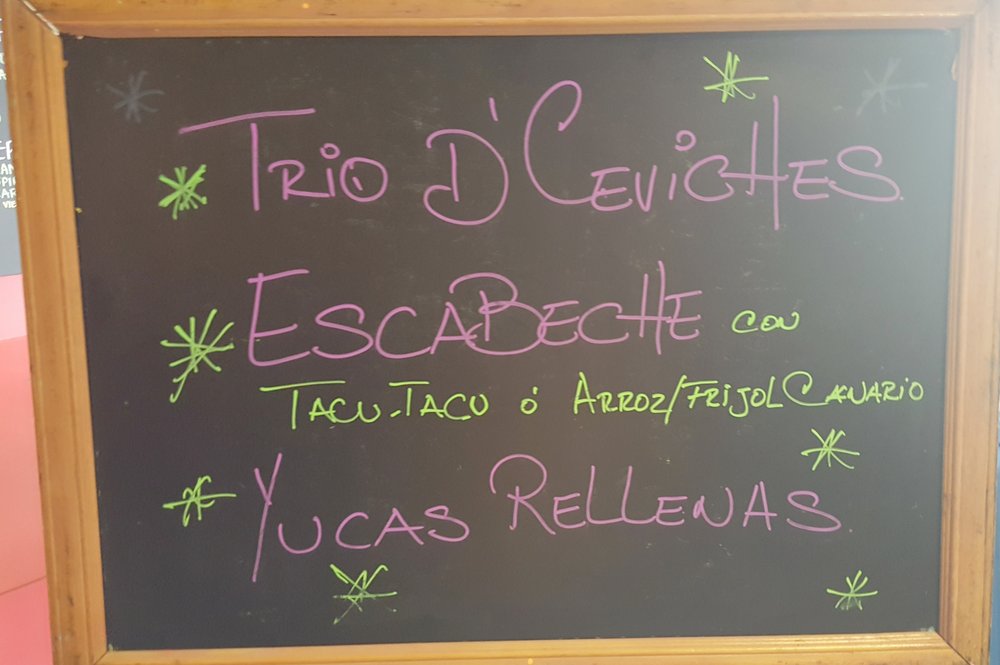 TRIO D' CEVICHES.
ESCABECHE CON
TACU-TACU ó ARROZ/FRIJOL CANARIO
YUCAS RELLENAS.